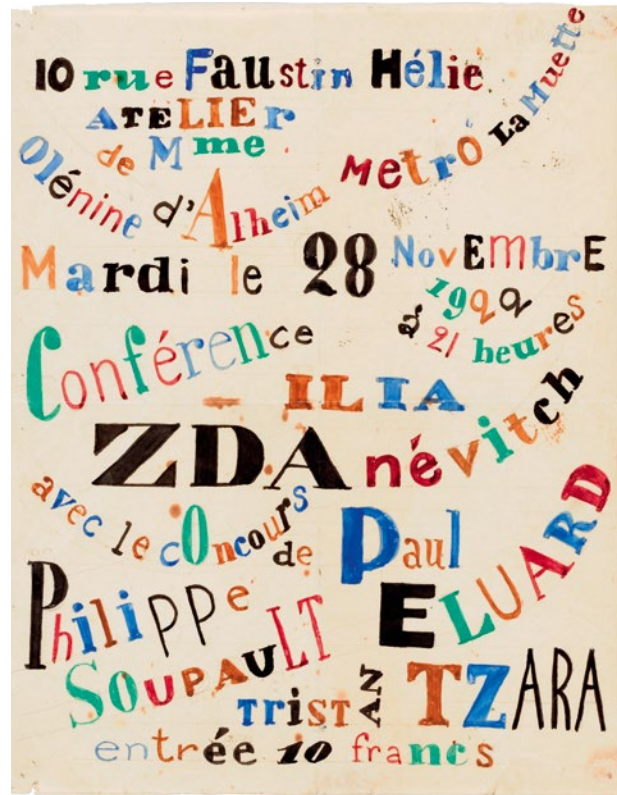 10 rue Faustin Hélie
ATELIEr
de Mme
Olénine d'Alheim
Metró La Muette
Mardi le 28 NovEmbrE
1922
à 21 heures
Conférence
ILIA
ZDAnévitch
avec le cOncours
de Paul
ELUARD
Philippe
SOUPAULT
TrisTAN TZARA
entrée 10 francs